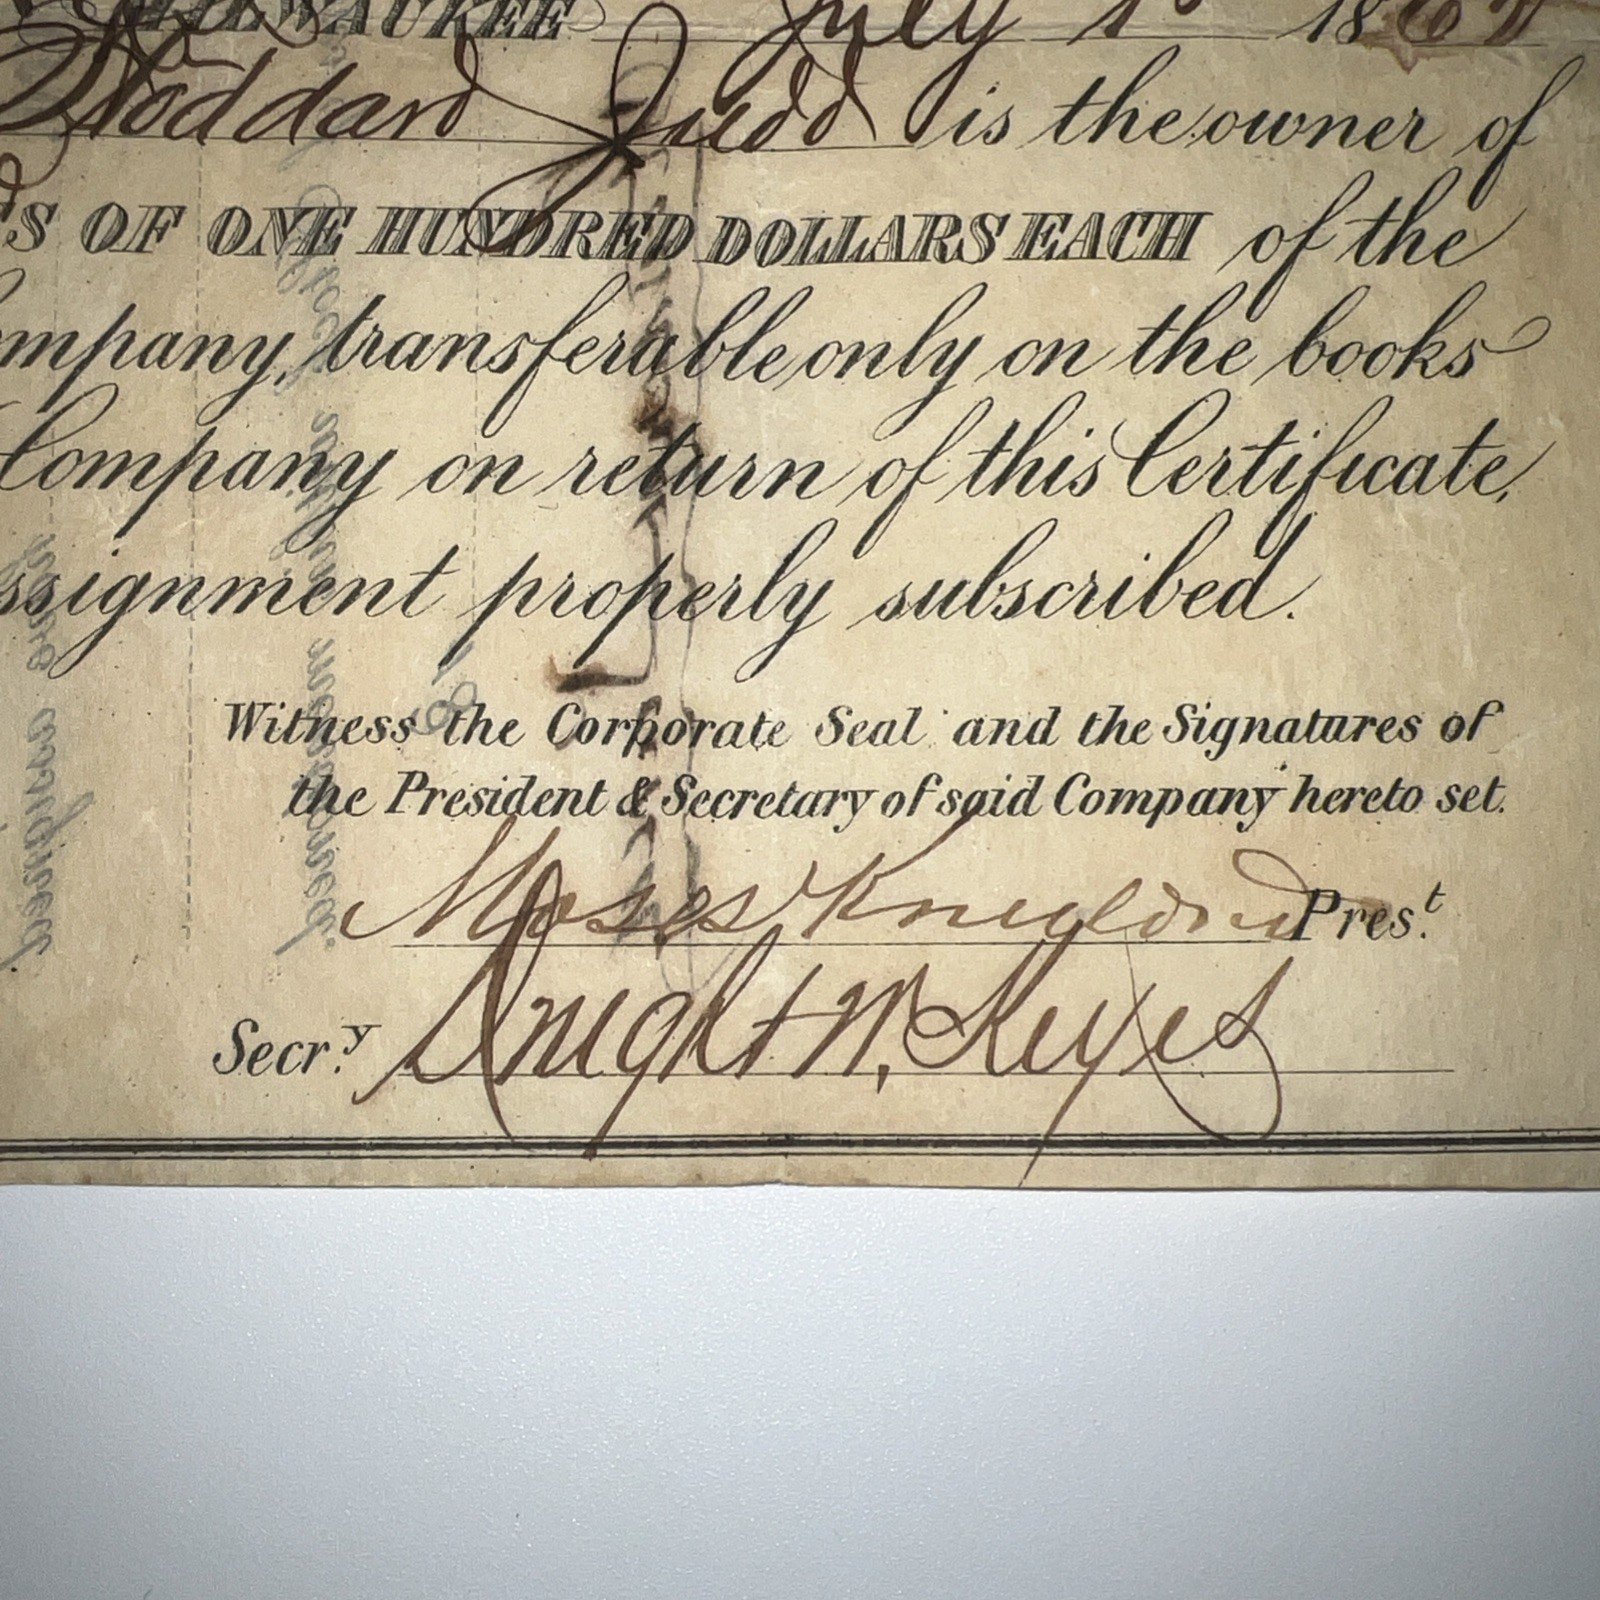 MILWAUKEE July 1st 186
Stoddard Judd is the owner of
S OF ONE HUNDRED DOLLARS EACH of the
ompany, transferable only on the books
Company on return of this Certificate,
ssignment properly subscribed.
Witness the Corporate Seal and the Signatures of
the President & Secretary of said Company hereto set.
Moses Kneeland Pres.t
Secr.y Dwight W. Keyes